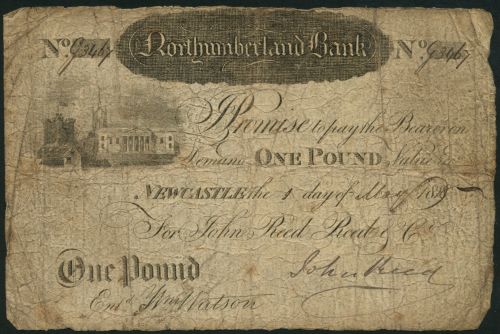 Northumberland Bank
No. G3467 No. G3467
I Promise to pay the Bearer on
Demand ONE POUND, Value
NEWCASTLE the 1 day of May
For John Reed Reed & Co
One Pound John Reed
Entd. Wm Watson